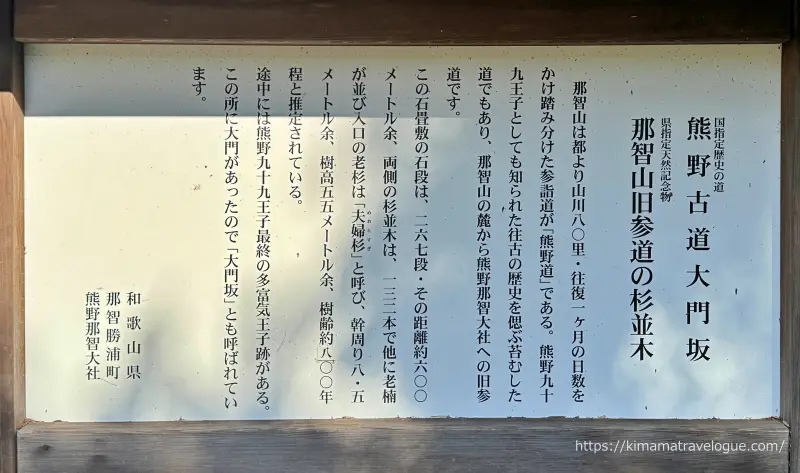 国指定歴史の道
熊野古道大門坂
県指定天然記念物
那智山旧参道の杉並木
那智山は都より山川八〇里・往復一ヶ月の日数を
かけ踏み分けた参詣道が「熊野道」である。熊野九十
九王子としても知られた往古の歴史を偲ぶ苔むした
道でもあり、那智山の麓から熊野那智大社への旧参
道です。
この石畳敷の石段は、二六七段・その距離約六〇〇
メートル余、両側の杉並木は、一三二本で他に老楠
が並び入口の老杉は「夫婦杉」と呼び、幹周り八・五
めおとすぎ
メートル余、樹高五五メートル余、樹齢約八〇〇年
程と推定されている。
途中には熊野九十九王子最終の多富気王子跡がある。
この所に大門があったので「大門坂」とも呼ばれてい
ます。
和歌山県
那智勝浦町
熊野那智大社
https://kimamatravelogue.com/